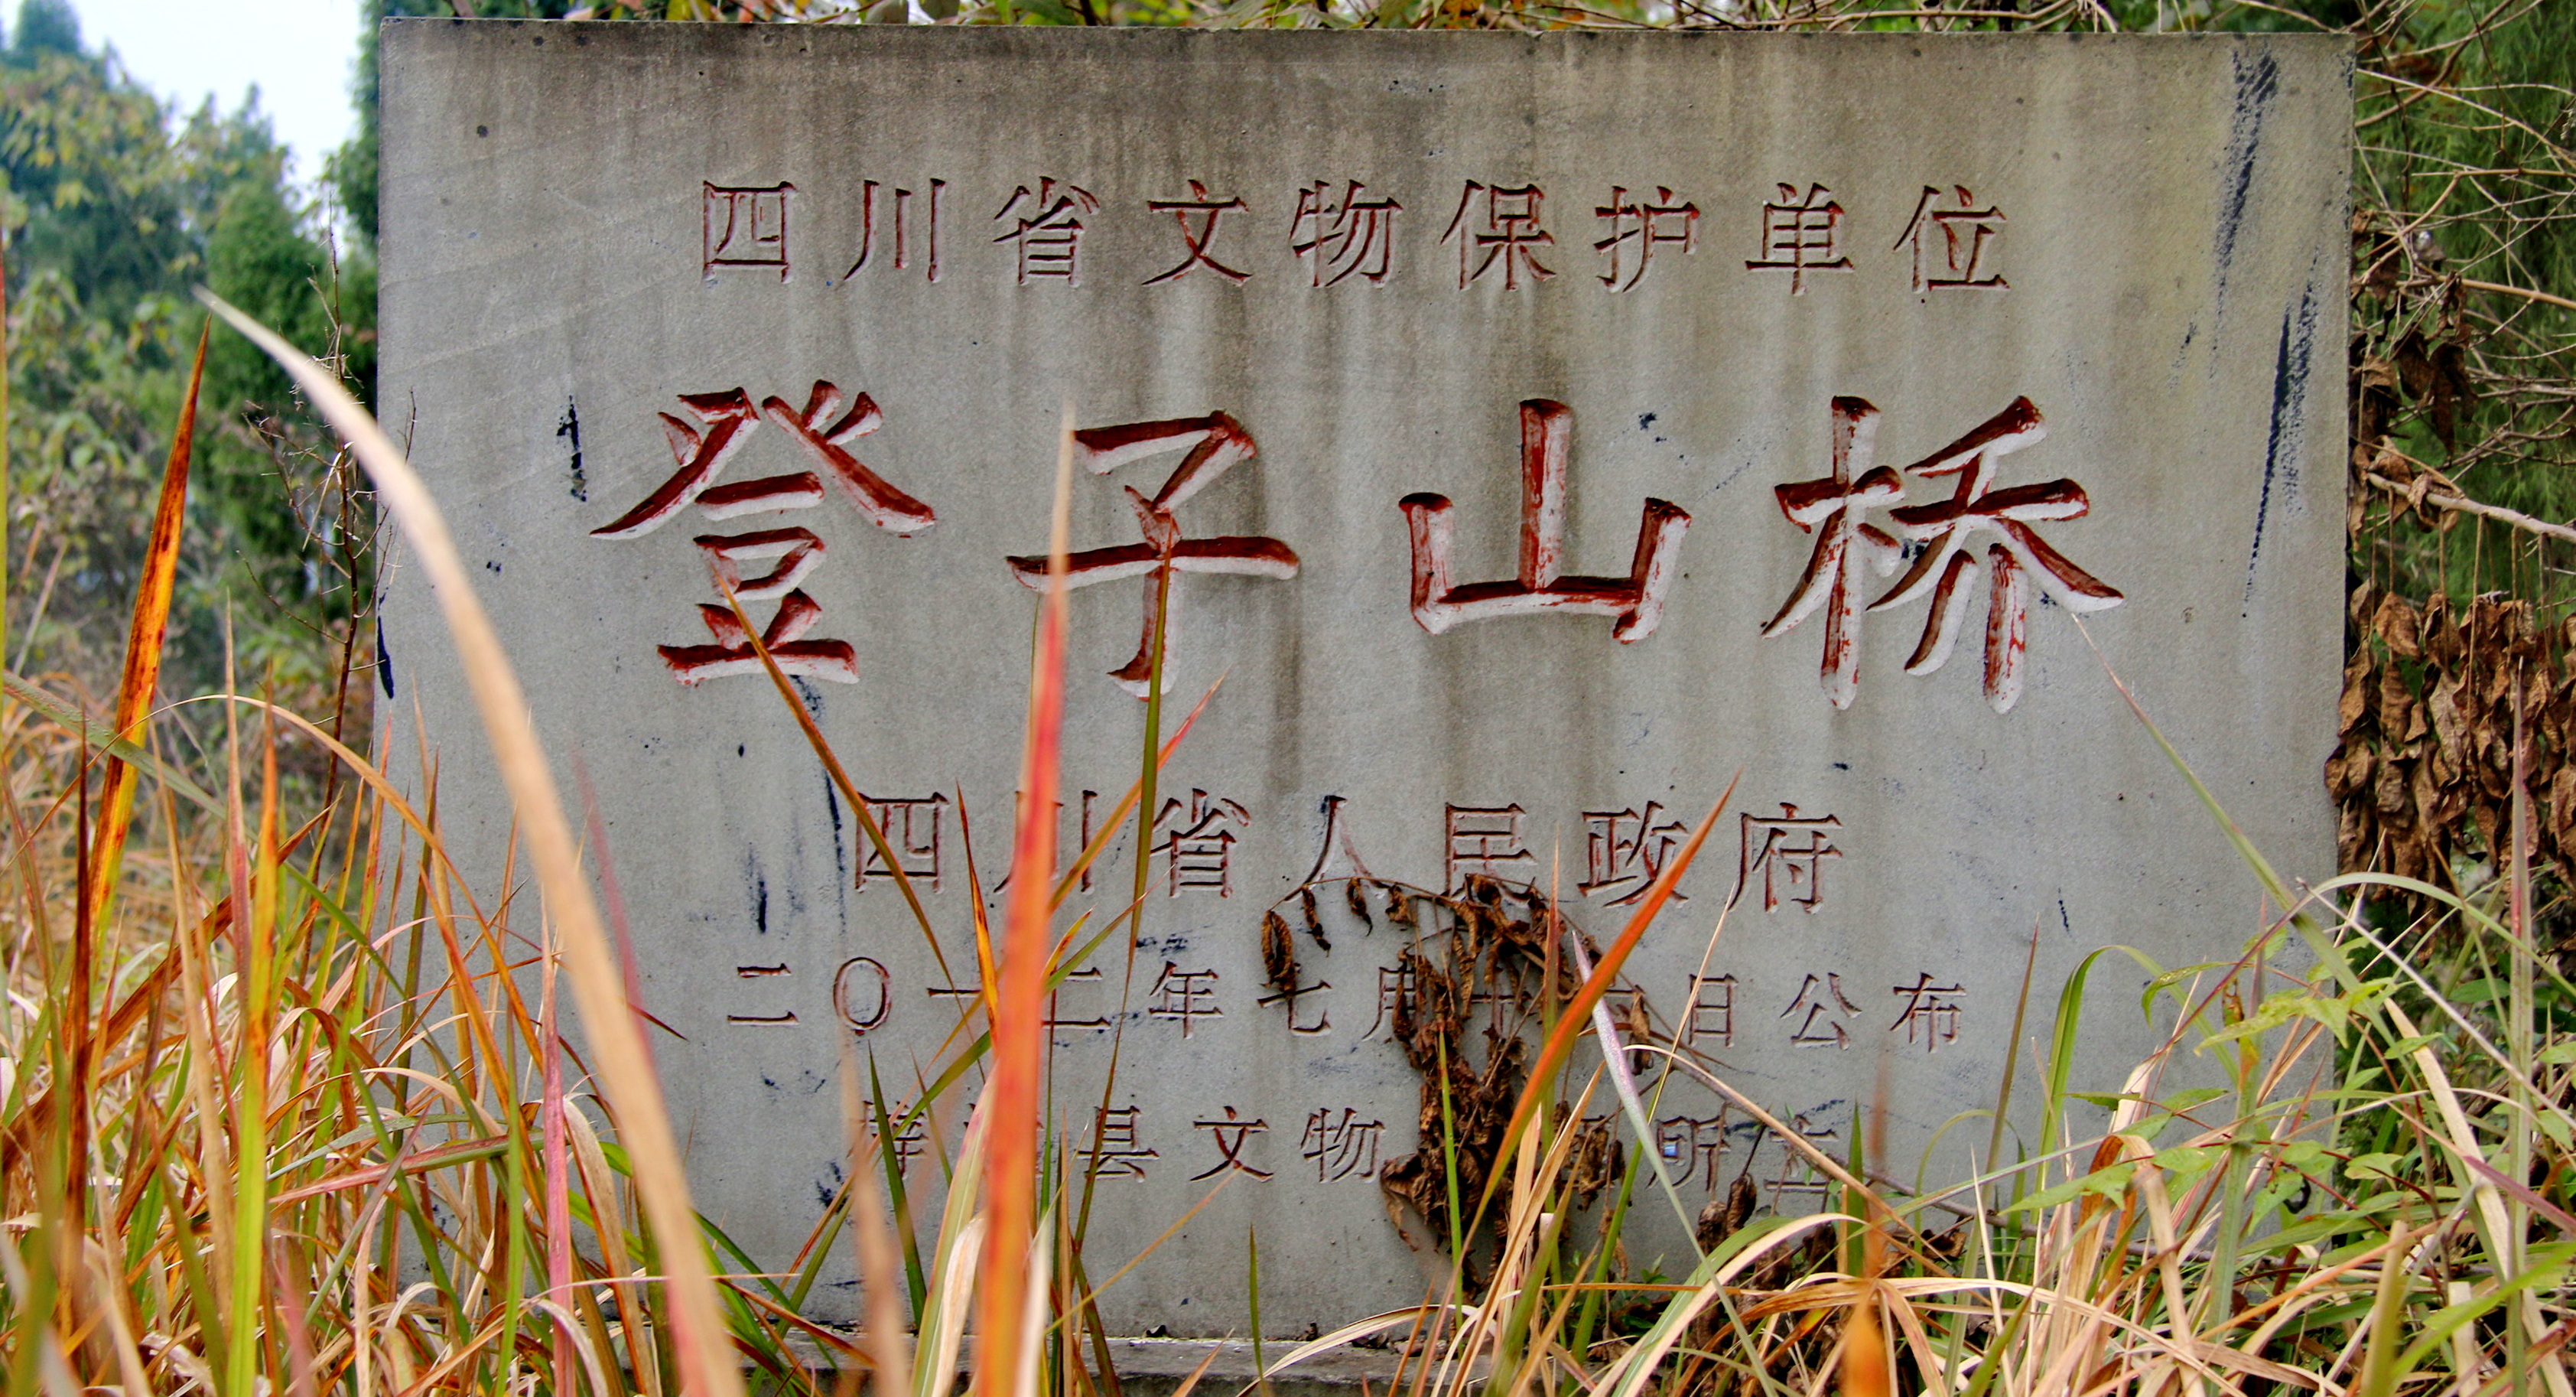 四川省文物保护单位
登子山桥
四川省人民政府
二〇一二年七月十六日公布
县文物 所立